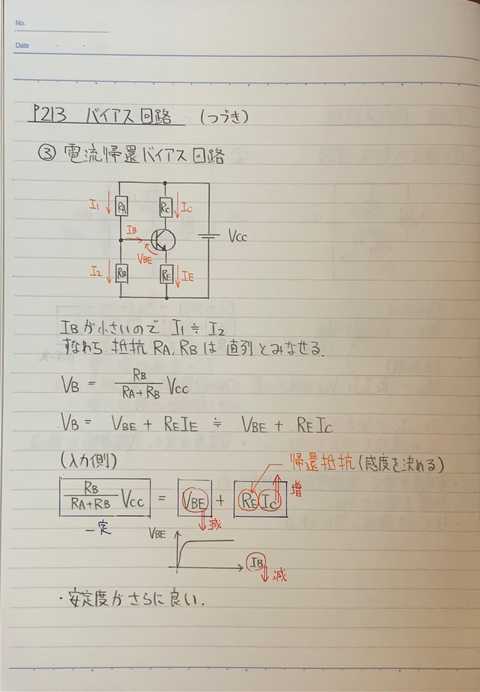 No.
Date
P213 バイアス回路 (つづき)
③ 電流帰還バイアス回路
I1 RA RC IC
IB
VBE
VCC
I2 RB RE IE
IBが小さいので I1≒I2
すなわち 抵抗 RA, RBは 直列とみなせる.
VB = RB/(RA+RB) VCC
VB = VBE + REIE ≒ VBE + REIC
(入力側)
帰還抵抗 (感度を決める)
RB/(RA+RB) VCC = VBE + RE IC 増
一定 減
VBE
IB
減
・安定度がさらに良い.